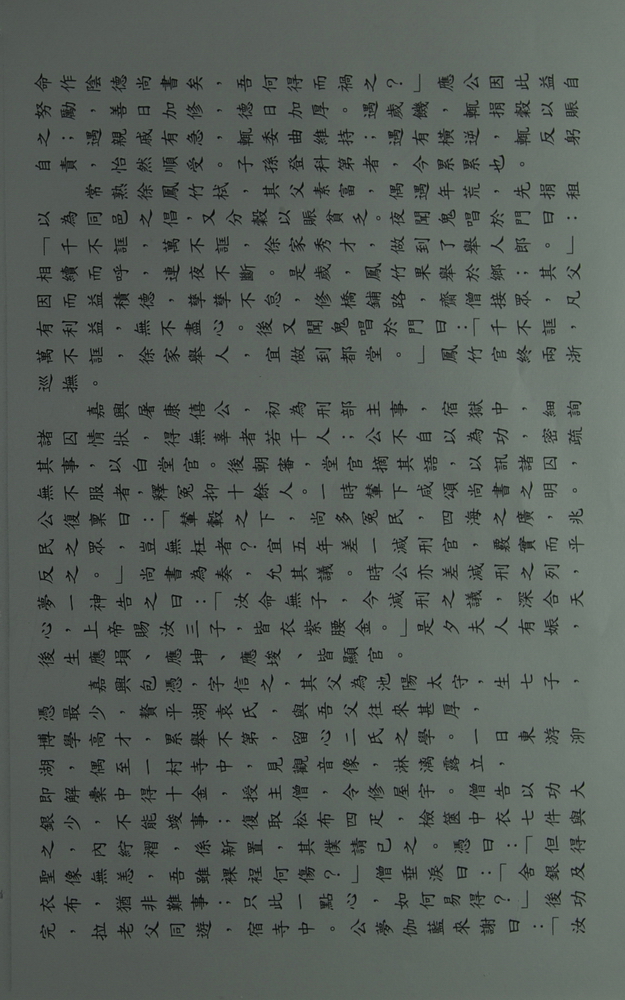 命作陰德尚書矣，吾何得而禍之？」應公因此益自
努勵，善日加修，德日加厚。遇歲饑，輒捐穀以賑
之；遇親戚有急，輒委曲維持；遇有橫逆，輒反躬
自責，怡然順受。子孫登科第者，今累累也。
常熟徐鳳竹栻，其父素富，偶遇年荒，先捐租
以為同邑之倡，又分穀以賑貧乏。夜聞鬼唱於門曰：
「千不誆，萬不誆，徐家秀才，做到了舉人郎。」
相續而呼，連夜不斷。是歲，鳳竹果舉於鄉；其父
因而益積德，孳孳不怠，修橋鋪路，齋僧接眾，凡
有利益，無不盡心。後又聞鬼唱於門曰：「千不誆，
萬不誆，徐家舉人，宜做到都堂。」鳳竹官終兩浙
巡撫。
嘉興屠康僖公，初為刑部主事，宿獄中，細詢
諸囚情狀，得無辜者若干人；公不自以為功，密疏
其事，以白堂官。後朝審，堂官摘其語，以訊諸囚，
無不服者，釋冤抑十餘人。一時輦下咸頌尚書之明。
公復稟曰：「輦轂之下，尚多冤民，四海之廣，兆
民之眾，豈無枉者？宜五年差一減刑官，覈實而平
反之。」尚書為奏，允其議。時公亦差減刑之列，
夢一神告之曰：「汝命無子，今減刑之議，深合天
心，上帝賜汝三子，皆衣紫腰金。」是夕夫人有娠，
後生應塤、應坤、應埈、皆顯官。
嘉興包憑，字信之，其父為池陽太守，生七子，
憑最少，贅平湖袁氏，與吾父往來甚厚，
博學高才，累舉不第，留心二氏之學。一日東游泖
湖，偶至一村寺中，見觀音像，淋漓露立，
即解橐中得十金，授主僧，令修屋宇。僧告以功大
銀少，不能竣事；復取松布四疋，檢篋中衣七件與
之，內紵褶，係新置，其僕請已之。憑曰：「但得
聖像無恙，吾雖裸裎何傷？」僧垂淚曰：「舍銀及
衣布，猶非難事；只此一點心，如何易得？」後功
完，拉老父同遊，宿寺中。公夢伽藍來謝曰：「汝